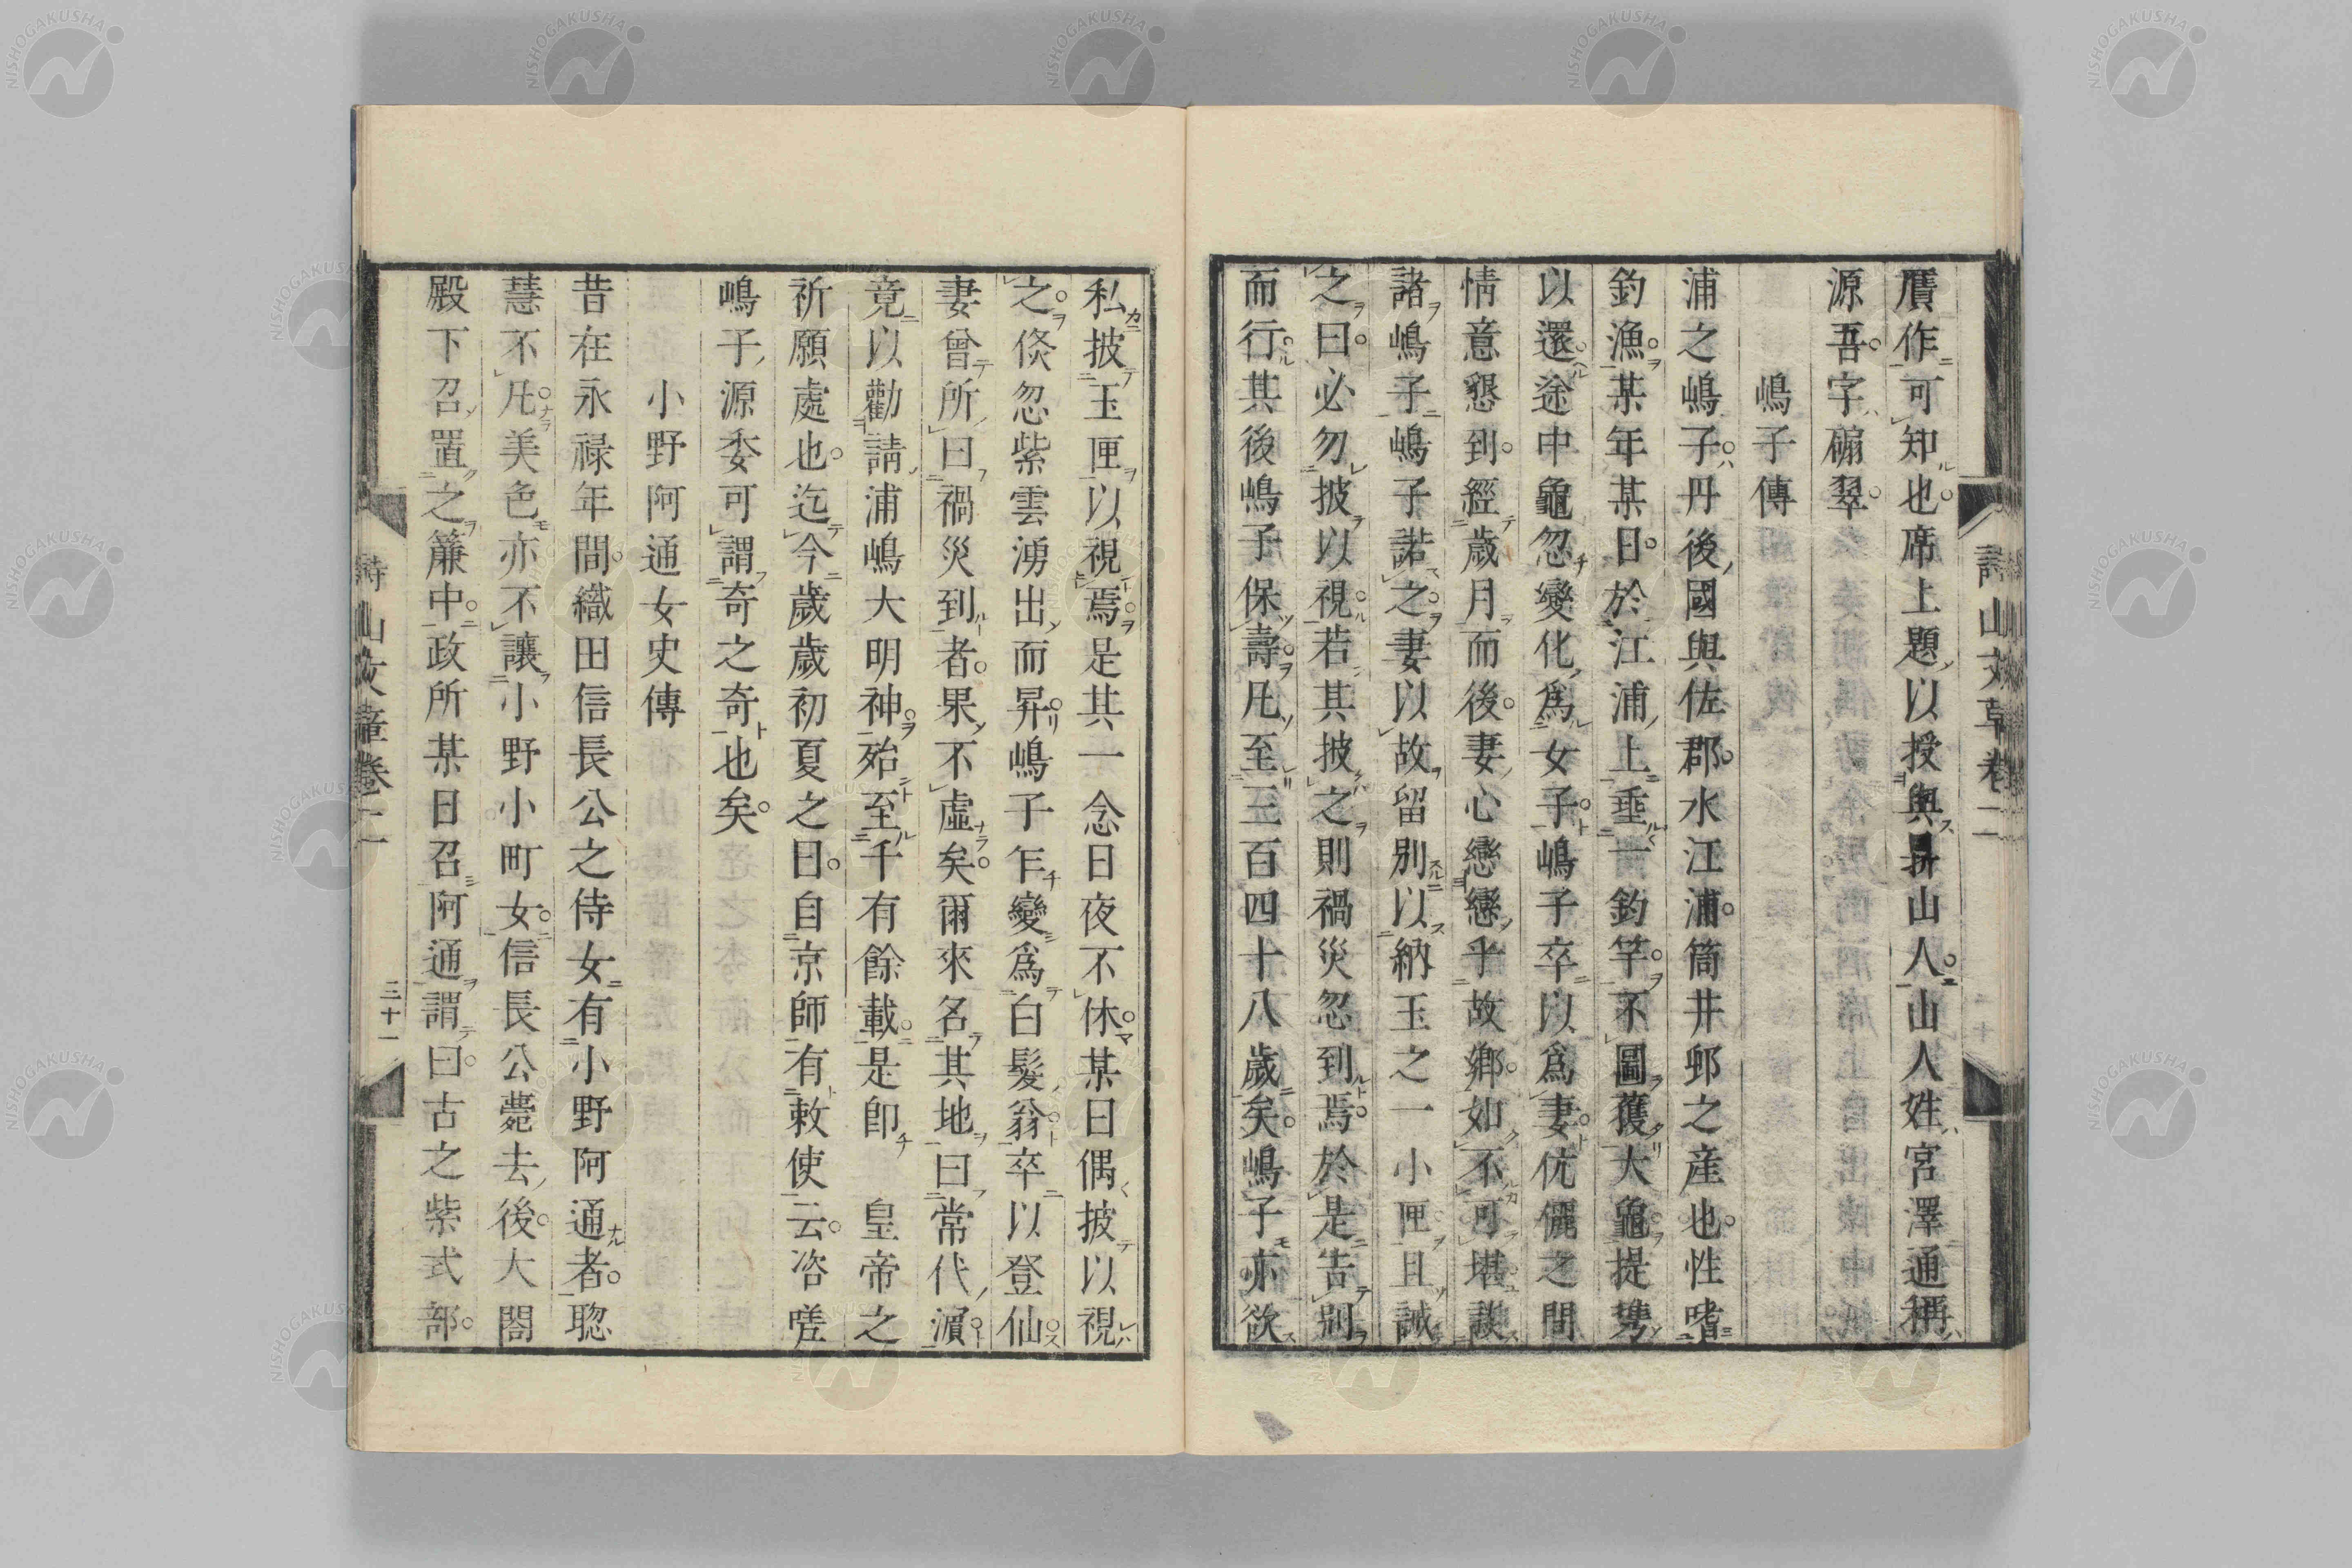 贋作可知也席上題以授與耕山人山人姓宮澤通稱
源吾字硼翠
嶋子傳
浦之嶋子丹後國與佐郡水江浦筒井邨之產也性嗜
釣漁某年某日於江浦上垂一釣竿不圖獲大龜提携
以還途中龜忽變化爲女子嶋子卒以爲妻伉儷之間
情意懇到經歲月而後妻心戀戀乎故鄉如不可堪談
諸嶋子嶋子諾之妻以故留別以納玉之一小匣且誡
之曰必勿披以視若其披之則禍災忽到焉於是告別
而行其後嶋子保壽凡至三百四十八歲矣嶋子亦欲
私披玉匣以視焉是其一念日夜不休某日偶披以視
之倐忽紫雲湧出而昇嶋子乍變爲白髮翁卒以登仙
妻曾所曰禍災到者果不虛矣爾來名其地曰常代濵
竟以勸請浦嶋大明神殆至千有餘載是卽 皇帝之
祈願處也迄今歲歲初夏之日自京師有敕使云咨嗟
嶋子源委可謂奇之奇也矣
小野阿通女史傳
昔在永祿年間織田信長公之侍女有小野阿通者聦
慧不凡美色亦不讓小野小町女信長公薨去後大閤
殿下召置之簾中政所某日召阿通謂曰古之紫式部
詩山文章卷二
三十一